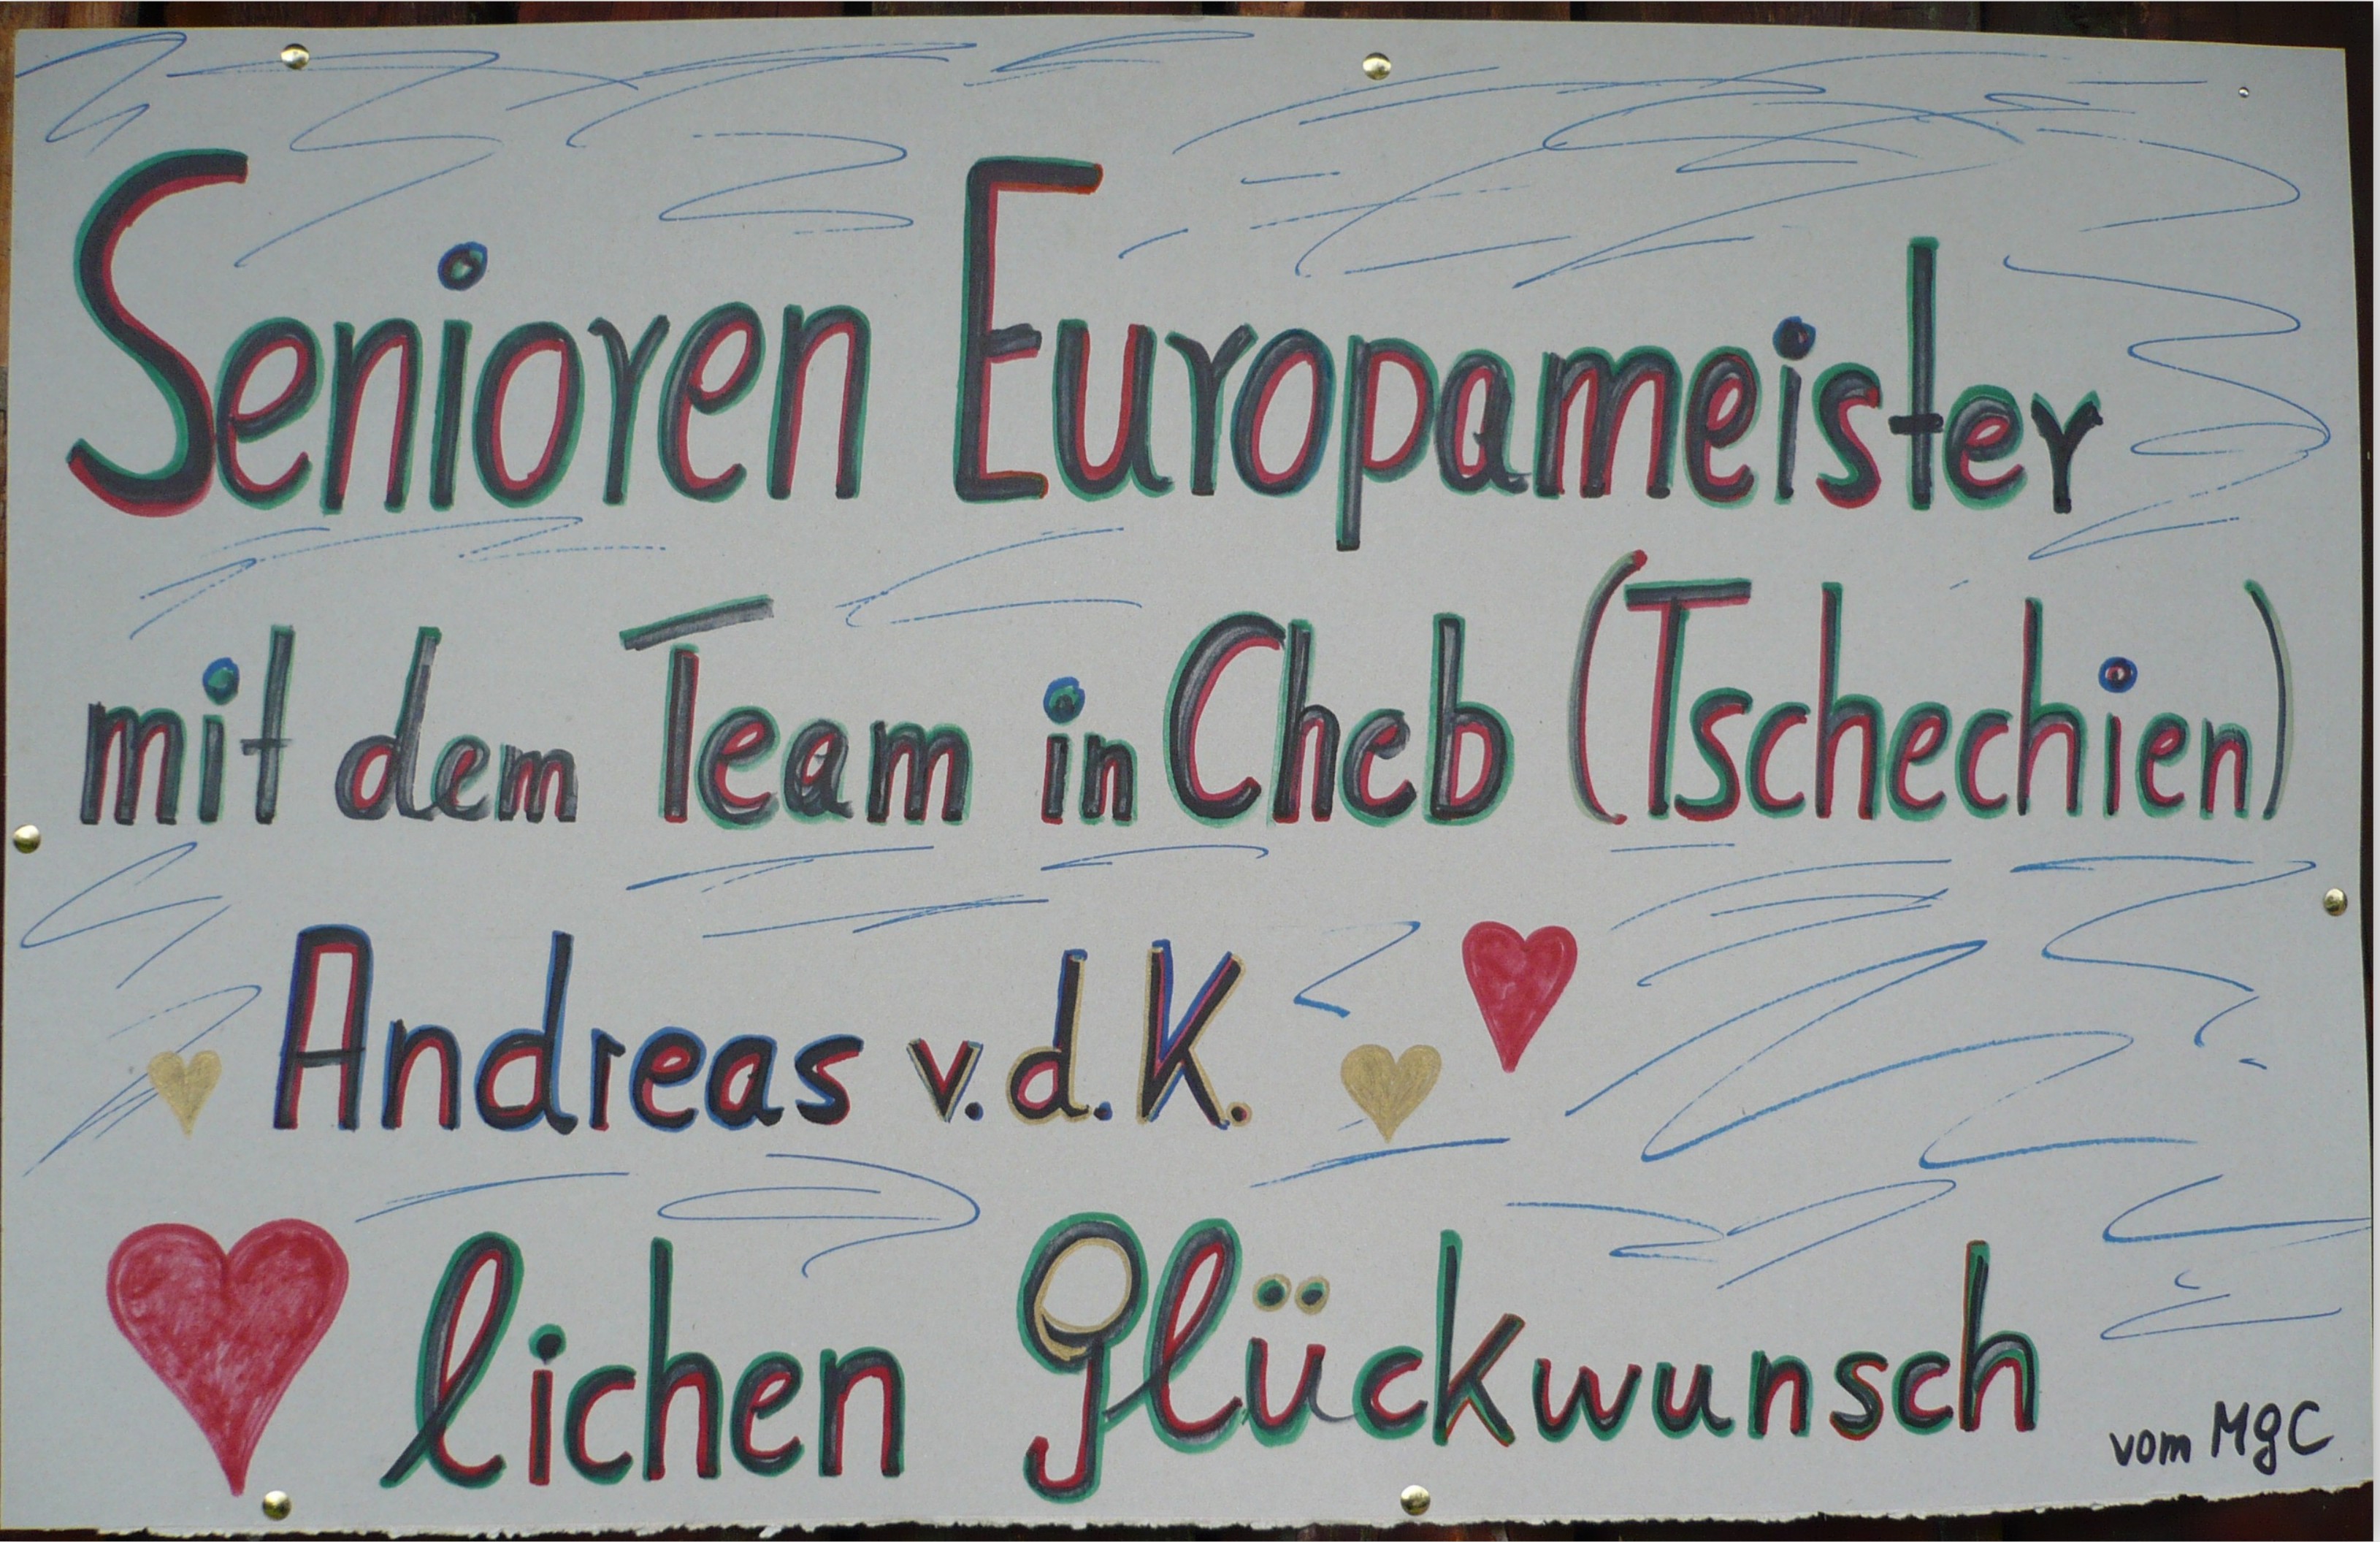 Senioren Europameister
mit dem Team in Cheb (Tschechien)
Andreas v.d.K.
lichen Glückwunsch
vom MGC